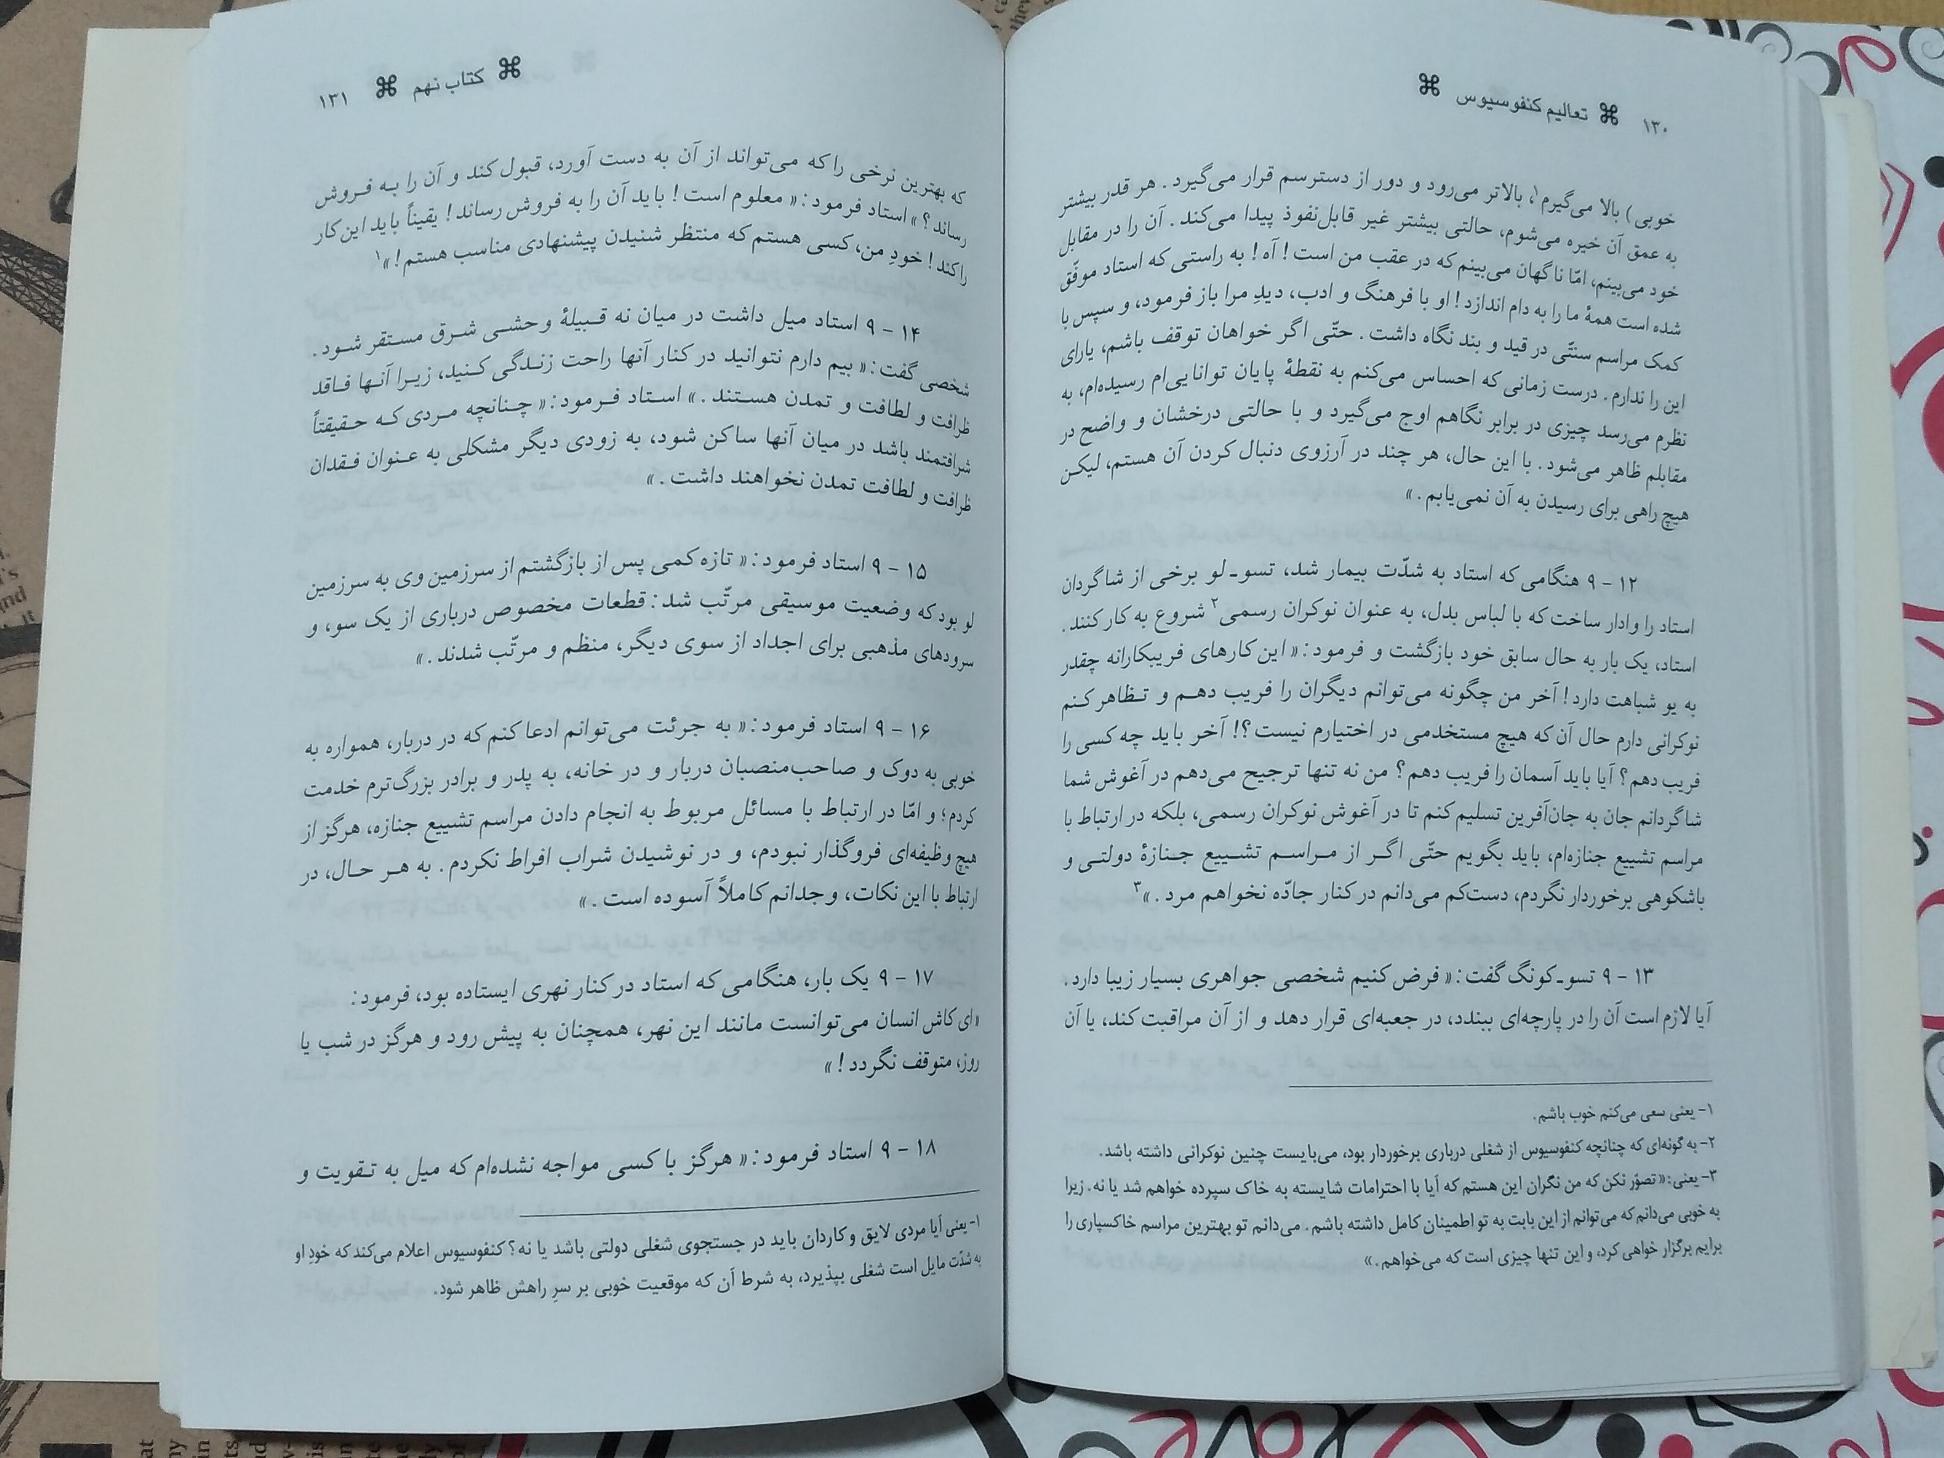 ۱۳۰ ⌘ تعالیم کنفوسیوس ⌘
خوبی) بالا می‌گیرم۱، بالاتر می‌رود و دور از دسترسم قرار می‌گیرد. هر قدر بیشتر
به عمق آن خیره می‌شوم، حالتی بیشتر غیر قابل‌نفوذ پیدا می‌کند. آن را در مقابل
خود می‌بینم، امّا ناگهان می‌بینم که در عقب من است! آه! به راستی که استاد موفّق
شده است همهٔ ما را به دام اندازد! او با فرهنگ و ادب، دیدِ مرا باز فرمود، و سپس با
کمک مراسم سنتّی در قید و بند نگاه داشت. حتّی اگر خواهان توقف باشم، یارای
این را ندارم. درست زمانی که احساس می‌کنم به نقطهٔ پایان توانایی‌ام رسیده‌ام، به
نظرم می‌رسد چیزی در برابر نگاهم اوج می‌گیرد و با حالتی درخشان و واضح در
مقابلم ظاهر می‌شود. با این حال، هر چند در آرزوی دنبال کردن آن هستم، لیکن
هیچ راهی برای رسیدن به آن نمی‌یابم.»
۱۲ - ۹ هنگامی که استاد به شدّت بیمار شد، تسو ـ لو برخی از شاگردان
استاد را وادار ساخت که با لباس بدل، به عنوان نوکران رسمی۲ شروع به کار کنند.
استاد، یک بار به حال سابق خود بازگشت و فرمود: «این کارهای فریبکارانه چقدر
به یو شباهت دارد! آخر من چگونه می‌توانم دیگران را فریب دهم و تظاهر کنم
نوکرانی دارم حال آن که هیچ مستخدمی در اختیارم نیست؟! آخر باید چه کسی را
فریب دهم؟ آیا باید آسمان را فریب دهم؟ من نه تنها ترجیح می‌دهم در آغوش شما
شاگردانم جان به جان‌آفرین تسلیم کنم تا در آغوش نوکران رسمی، بلکه در ارتباط با
مراسم تشییع جنازه‌ام، باید بگویم حتّی اگر از مراسم تشییع جنازهٔ دولتی و
باشکوهی برخوردار نگردم، دست‌کم می‌دانم در کنار جادّه نخواهم مرد.»۳
۱۳ - ۹ تسو ـ کونگ گفت: «فرض کنیم شخصی جواهری بسیار زیبا دارد.
آیا لازم است آن را در پارچه‌ای ببندد، در جعبه‌ای قرار دهد و از آن مراقبت کند، یا آن
۱- یعنی سعی می‌کنم خوب باشم.
۲- به گونه‌ای که چنانچه کنفوسیوس از شغلی درباری برخوردار بود، می‌بایست چنین نوکرانی داشته باشد.
۳- یعنی: «تصوّر نکن که من نگران این هستم که آیا با احترامات شایسته به خاک سپرده خواهم شد یا نه. زیرا
به خوبی می‌دانم که می‌توانم از این بابت به تو اطمینان کامل داشته باشم. می‌دانم تو بهترین مراسم خاکسپاری را
برایم برگزار خواهی کرد، و این تنها چیزی است که می‌خواهم.»
⌘ کتاب نهم ⌘ ۱۳۱
که بهترین نرخی را که می‌تواند از آن به دست آورد، قبول کند و آن را به فروش
رساند؟» استاد فرمود: «معلوم است! باید آن را به فروش رساند! یقیناً باید این کار
را کند! خودِ من، کسی هستم که منتظر شنیدن پیشنهادی مناسب هستم!»۱
۱۴ - ۹ استاد میل داشت در میان نه قبیلهٔ وحشی شرق مستقر شود.
شخصی گفت: «بیم دارم نتوانید در کنار آنها راحت زندگی کنید، زیرا آنها فاقد
ظرافت و لطافت و تمدن هستند.» استاد فرمود: «چنانچه مردی که حقیقتاً
شرافتمند باشد در میان آنها ساکن شود، به زودی دیگر مشکلی به عنوان فقدان
ظرافت و لطافت تمدن نخواهند داشت.»
۱۵ - ۹ استاد فرمود: «تازه کمی پس از بازگشتم از سرزمین وی به سرزمین
لو بود که وضعیت موسیقی مرتّب شد: قطعات مخصوص درباری از یک سو، و
سرودهای مذهبی برای اجداد از سوی دیگر، منظم و مرتّب شدند.»
۱۶ - ۹ استاد فرمود: «به جرئت می‌توانم ادعا کنم که در دربار، همواره به
خوبی به دوک و صاحب‌منصبان دربار و در خانه، به پدر و برادر بزرگ‌ترم خدمت
کردم؛ و امّا در ارتباط با مسائل مربوط به انجام دادن مراسم تشییع جنازه، هرگز از
هیچ وظیفه‌ای فروگذار نبودم، و در نوشیدن شراب افراط نکردم. به هر حال، در
ارتباط با این نکات، وجدانم کاملاً آسوده است.»
۱۷ - ۹ یک بار، هنگامی که استاد در کنار نهری ایستاده بود، فرمود:
«ای کاش انسان می‌توانست مانند این نهر، همچنان به پیش رود و هرگز در شب یا
روز، متوقف نگردد!»
۱۸ - ۹ استاد فرمود: «هرگز با کسی مواجه نشده‌ام که میل به تقویت و
۱- یعنی آیا مردی لایق و کاردان باید در جستجوی شغلی دولتی باشد یا نه؟ کنفوسیوس اعلام می‌کند که خودِ او
به شدّت مایل است شغلی بپذیرد، به شرط آن که موقعیت خوبی بر سرِ راهش ظاهر شود.